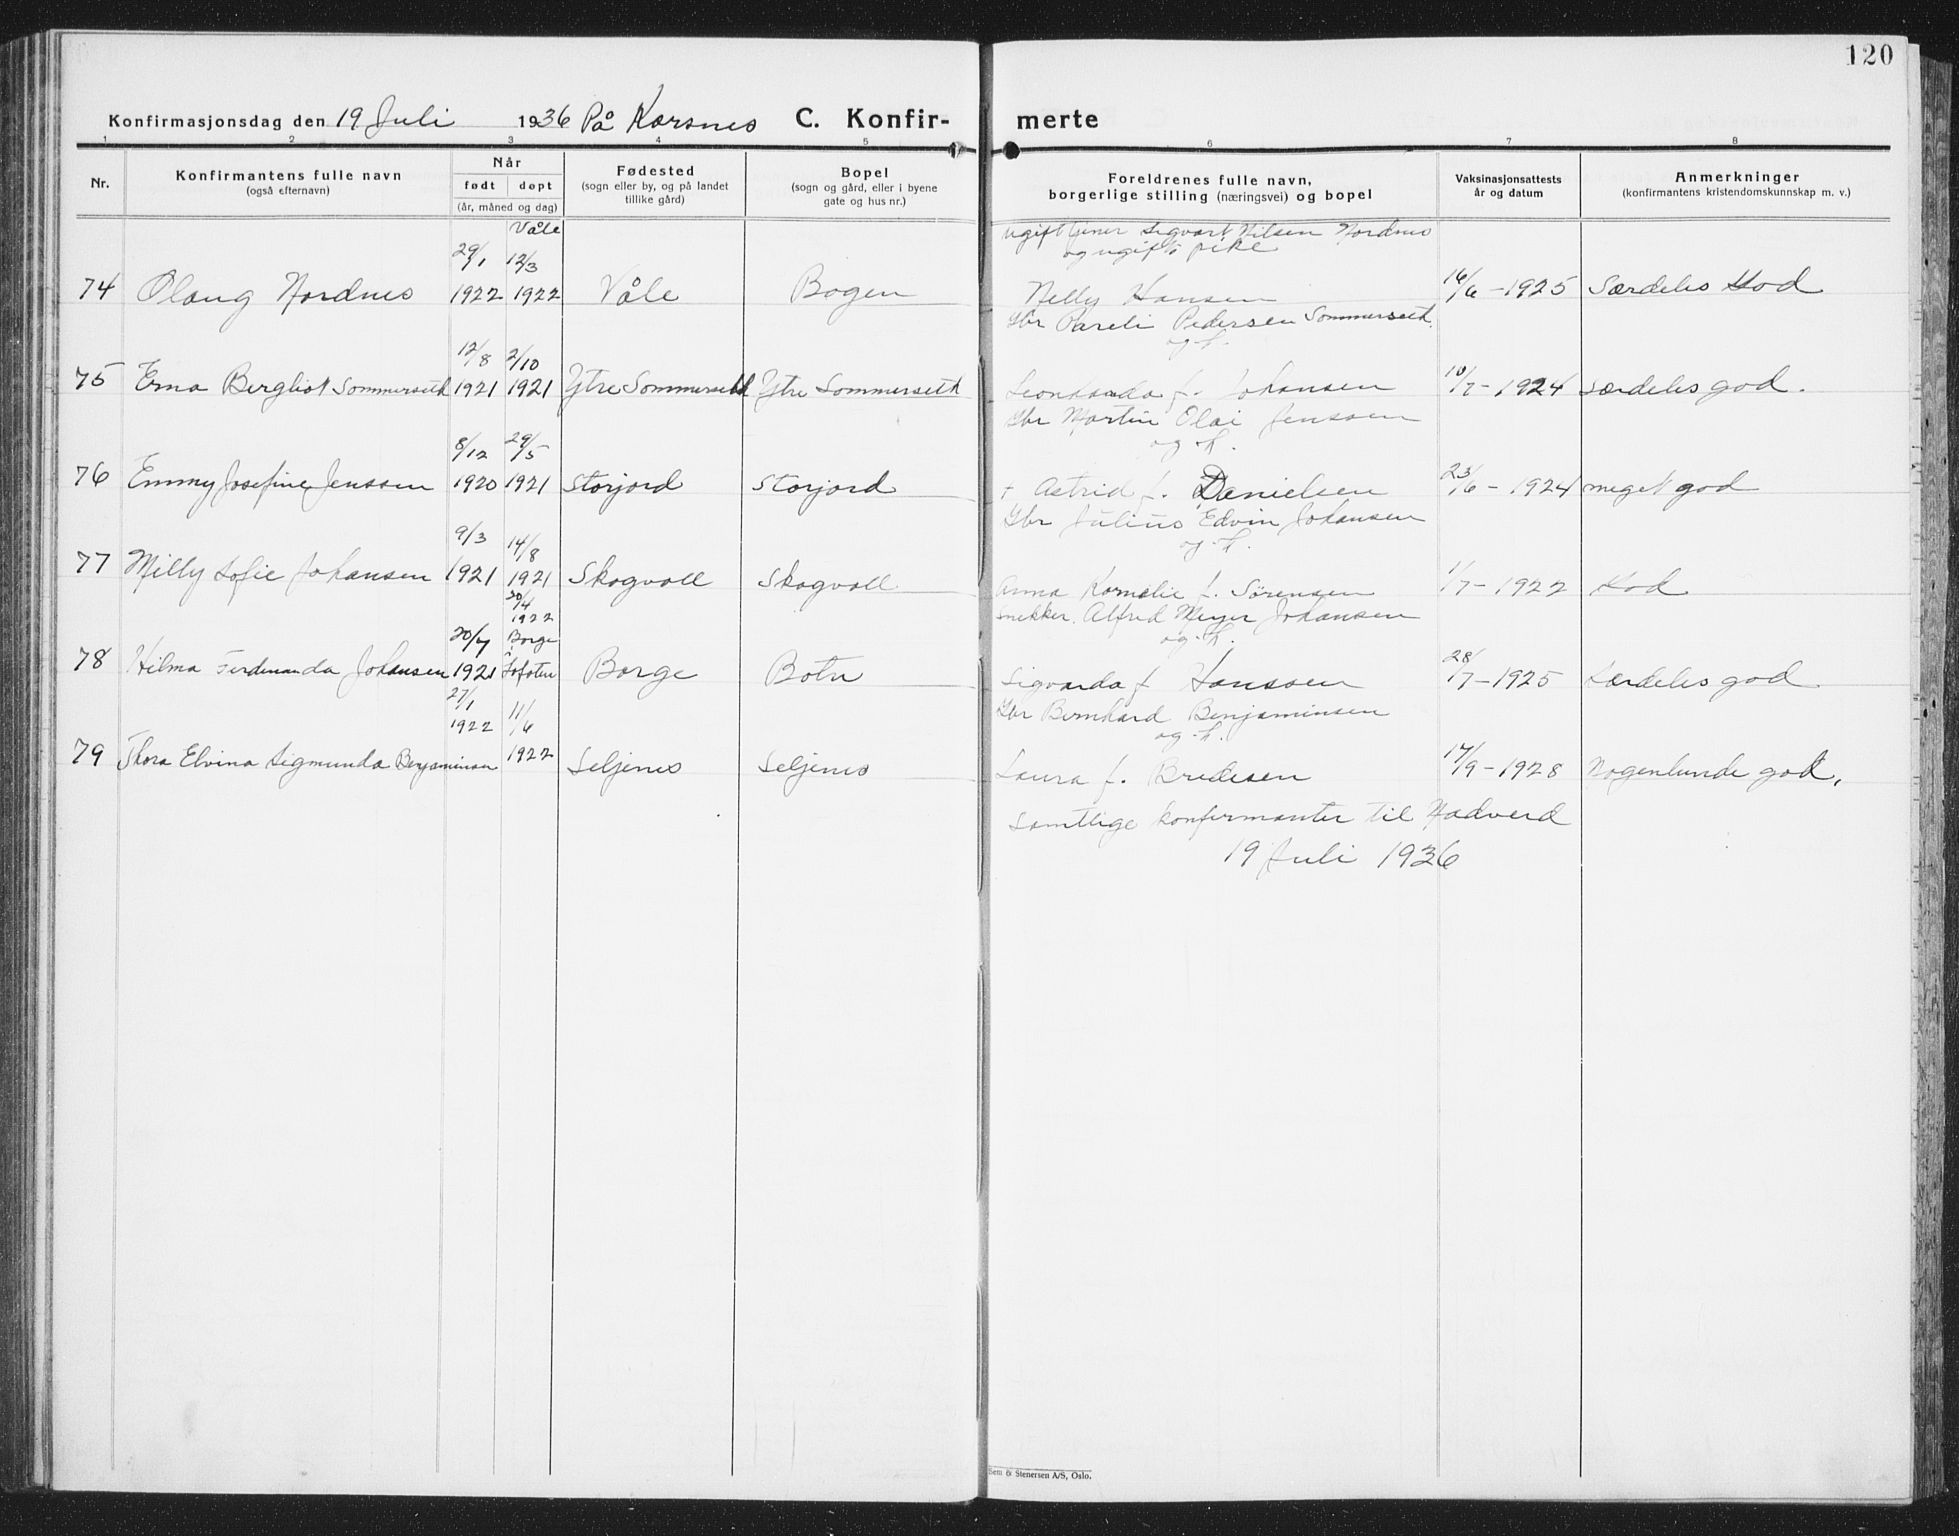 120
Konfirmasjonsdag den 19 Juli 1936 På Korsnes C. Konfir- merte
1 2 3 4 5 6 7 8
Nr.
Konfirmantens fulle navn
(også efternavn)
Når
født døpt
(år, måned og dag)
Fødested
(sogn eller by, og på landet
tillike gård)
Bopel
(sogn og gård, eller i byene
gate og hus nr.)
Foreldrenes fulle navn,
borgerlige stilling (næringsvei) og bopel
Vaksinasjonsattests
år og datum
Anmerkninger
(konfirmantens kristendomskunnskap m. v.)
Våle
ugift Sigvart Nilsen Nordnes
og ugift pike
29/1 12/3
74 Olaug Nordnes 1922 1922 Våle Bogen Nelly Hansen 16/6 - 1925 Særdeles God
Gbr Pareli Pedersen Sommerseth.
og h.
12/8 2/10
75 Erna Bergliot Sommerseth 1921 1921 Ytre Sommerseth Ytre Sommerseth Leonharda f. Johansen 10/7 - 1924 særdeles god.
Gbr Martin Olai Jenssen
og h.
8/12 29/5
76 Emmy Josefine Jenssen 1920 1921 Storjord Storjord + Astrid f. Danielsen 23/6 - 1924 meget god
Gbr Julius Edvin Johansen
og h.
9/3 14/8
77 Milly Sofie Johansen 1921 1921 Skogvoll Skogvoll Anna Kornelie f. Sørensen 1/7 - 1922 God
30/4
1922
snekker. Alfred Meyer Johansen
og h.
20/7 Borge
78 Hilma Ferdinanda Johansen 1921 Lofoten Borge Botn Sigvarda f Hanssen 28/7 - 1925 Særdeles god
27/1 11/6
1922
Gbr Bernhard Benjaminsen
og h.
79 Thora Elvina Sigmunda Benjaminsen 1922 Seljenes Seljenes Laura f. Bredesen 17/9 - 1928 Nogenlunde god.
Samtlige konfirmanter til Nadverd
19 Juli 1936
Sem & Stenersen A/S, Oslo.